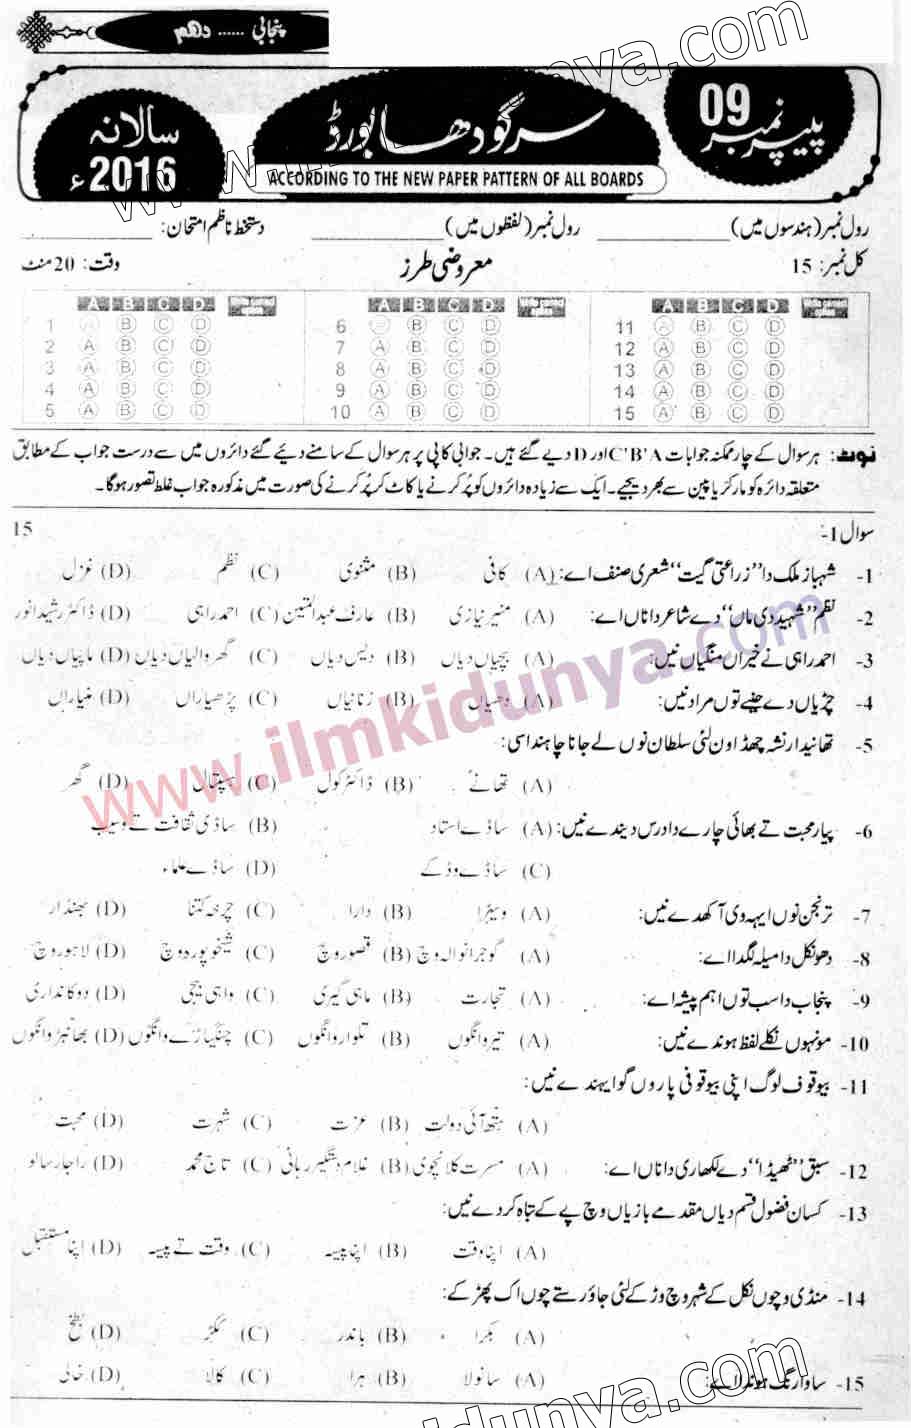 پنجابی ...... دھم
سرگودھا بورڈ
پیپر نمبر 09
سالانہ 2016ء
ACCORDING TO THE NEW PAPER PATTERN OF ALL BOARDS
رول نمبر (ہندسوں میں) ____________ رول نمبر (لفظوں میں) ____________ دستخط ناظم امتحان: ____________
کل نمبر: 15 معروضی طرز وقت: 20 منٹ
A B C D Write correct option A B C D Write correct option A B C D Write correct option
1 A B C D 6 A B C D 11 A B C D
2 A B C D 7 A B C D 12 A B C D
3 A B C D 8 A B C D 13 A B C D
4 A B C D 9 A B C D 14 A B C D
5 A B C D 10 A B C D 15 A B C D
نوٹ: ہر سوال کے چار ممکنہ جوابات C'B'A اور D دیے گئے ہیں۔ جوابی کاپی پر ہر سوال کے سامنے دیئے گئے دائروں میں سے درست جواب کے مطابق
متعلقہ دائرہ کو مارکر یا پین سے بھر دیجیے۔ ایک سے زیادہ دائروں کو پُر کرنے یا کاٹ کر پُر کرنے کی صورت میں مذکورہ جواب غلط تصور ہوگا۔
سوال 1- 15
1- شہباز ملک دا "زراعتی گیت" شعری صنف اے: (A) کافی (B) مثنوی (C) نظم (D) غزل
2- نظم "شہید دی ماں" دے شاعر دا ناں اے: (A) منیر نیازی (B) عارف عبدالمتین (C) احمد راہی (D) ڈاکٹر رشید انور
3- احمد راہی نے خیراں منگیاں نیں: (A) بچیاں دیاں (B) دیس دیاں (C) گھر والیاں دیاں (D) ماپیاں دیاں
4- چڑیاں دے چنبے توں مراد نیں: (A) دھیاں (B) زنانیاں (C) پڑھیاراں (D) منیاراں
5- تھانیدار نشہ چھڈاون لئی سلطان نوں لے جانا چاہندا سی:
(A) تھانے (B) ڈاکٹر کول (C) ہسپتال (D) گھر
6- پیار محبت تے بھائی چارے دا درس دیندے نیں: (A) ساڈے استاد (B) ساڈی ثقافت تے وسیب
(C) ساڈے وڈکے (D) ساڈے علماء
7- ترنجن نوں ایہہ وی آکھدے نیں: (A) ویہڑا (B) دارا (C) چرخہ کتنا (D) بھنڈار
8- دھونکل دا میلہ لگدا اے: (A) گوجرانوالہ وچ (B) قصور وچ (C) شیخوپورہ وچ (D) لاہور وچ
9- پنجاب دا سب توں اہم پیشہ اے: (A) تجارت (B) ماہی گیری (C) واہی بیجی (D) دوکانداری
10- مونہوں نکلے لفظ ہوندے نیں: (A) تیر وانگوں (B) تلوار وانگوں (C) چنگیاڑے وانگوں (D) بھانبڑ وانگوں
11- بیوقوف لوگ اپنی بیوقوفی پاروں گوا بہندے نیں:
(A) ہتھ آئی دولت (B) عزت (C) شہرت (D) محبت
12- سبق "ٹھیڈا" دے لکھاری دا ناں اے: (A) مسرت کلانچوی (B) غلام دستگیر ربانی (C) تاج محمد (D) راجا رسالو
13- کسان فضول قسم دیاں مقدمے بازیاں وچ پے کے تباہ کردے نیں:
(A) اپنا وقت (B) اپنا پیسہ (C) وقت تے پیسہ (D) اپنا مستقبل
14- منڈی وچوں نکل کے شہر وچ وڑ کے لئی جاؤ رستے چوں اک پھڑ کے:
(A) بکرا (B) باندر (C) ککڑ (D) بطخ
15- ساوا رنگ ہوندا اے: (A) سانولا (B) ہرا (C) کالا (D) خالی
www.ilmkidunya.com